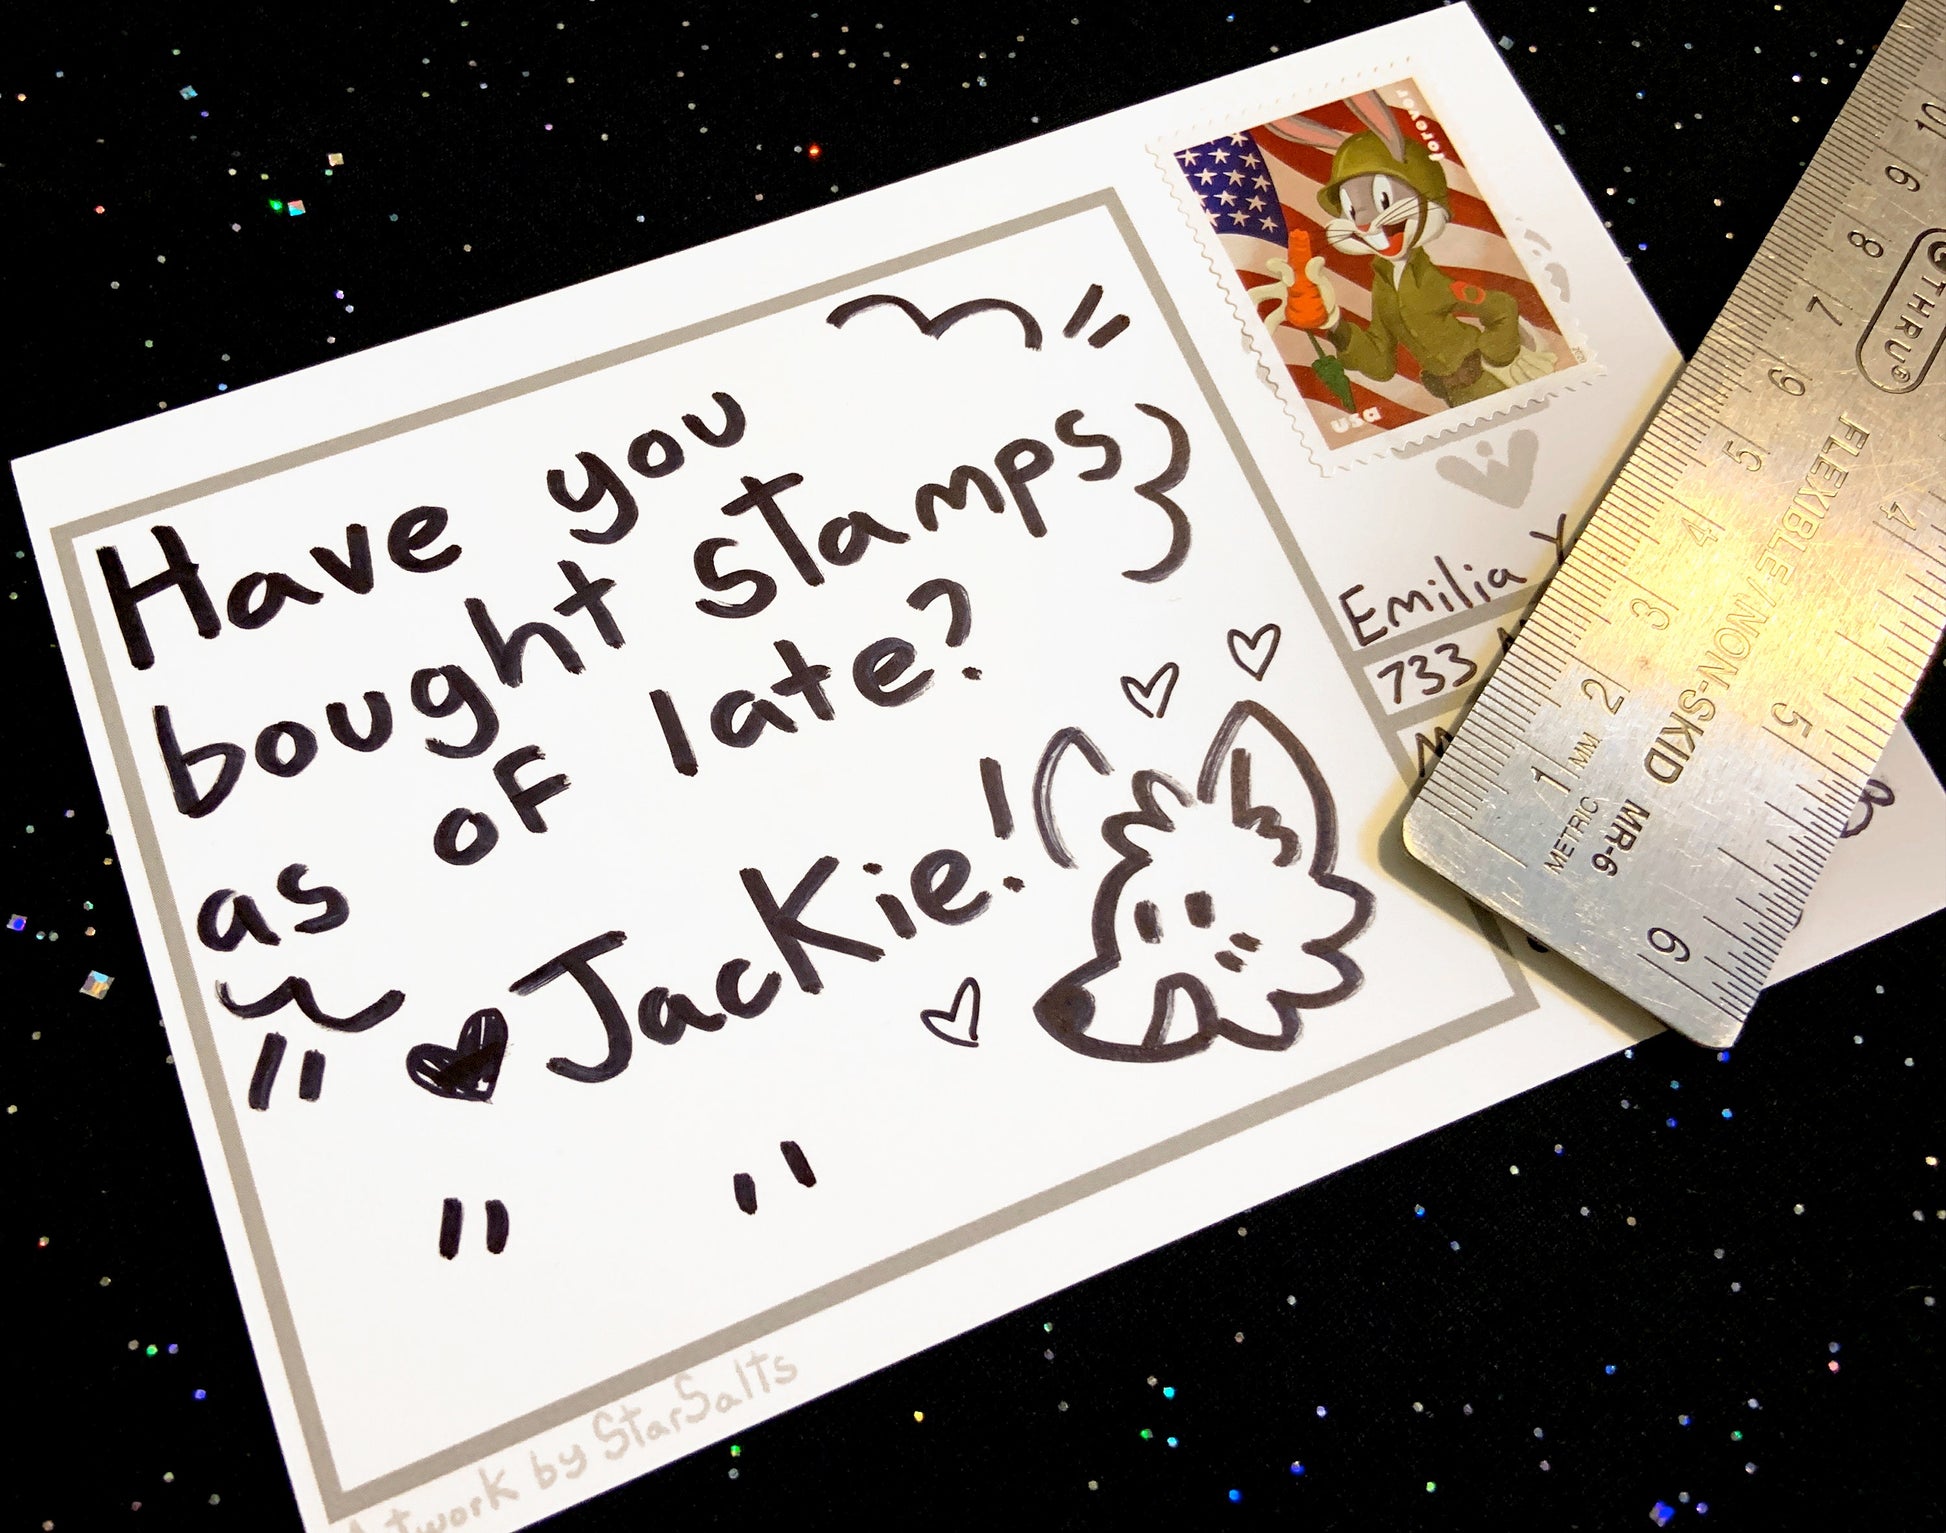 Have you
bought stamps
as of late?
♥Jackie!
Artwork by StarSalts
forever
USA
Emilia Y
733
METRIC
MM
1 2 3 4 5 6 7 8 9 10
MR-6
FLEXIBLE/NON-SKID
THRU®
4 5 6